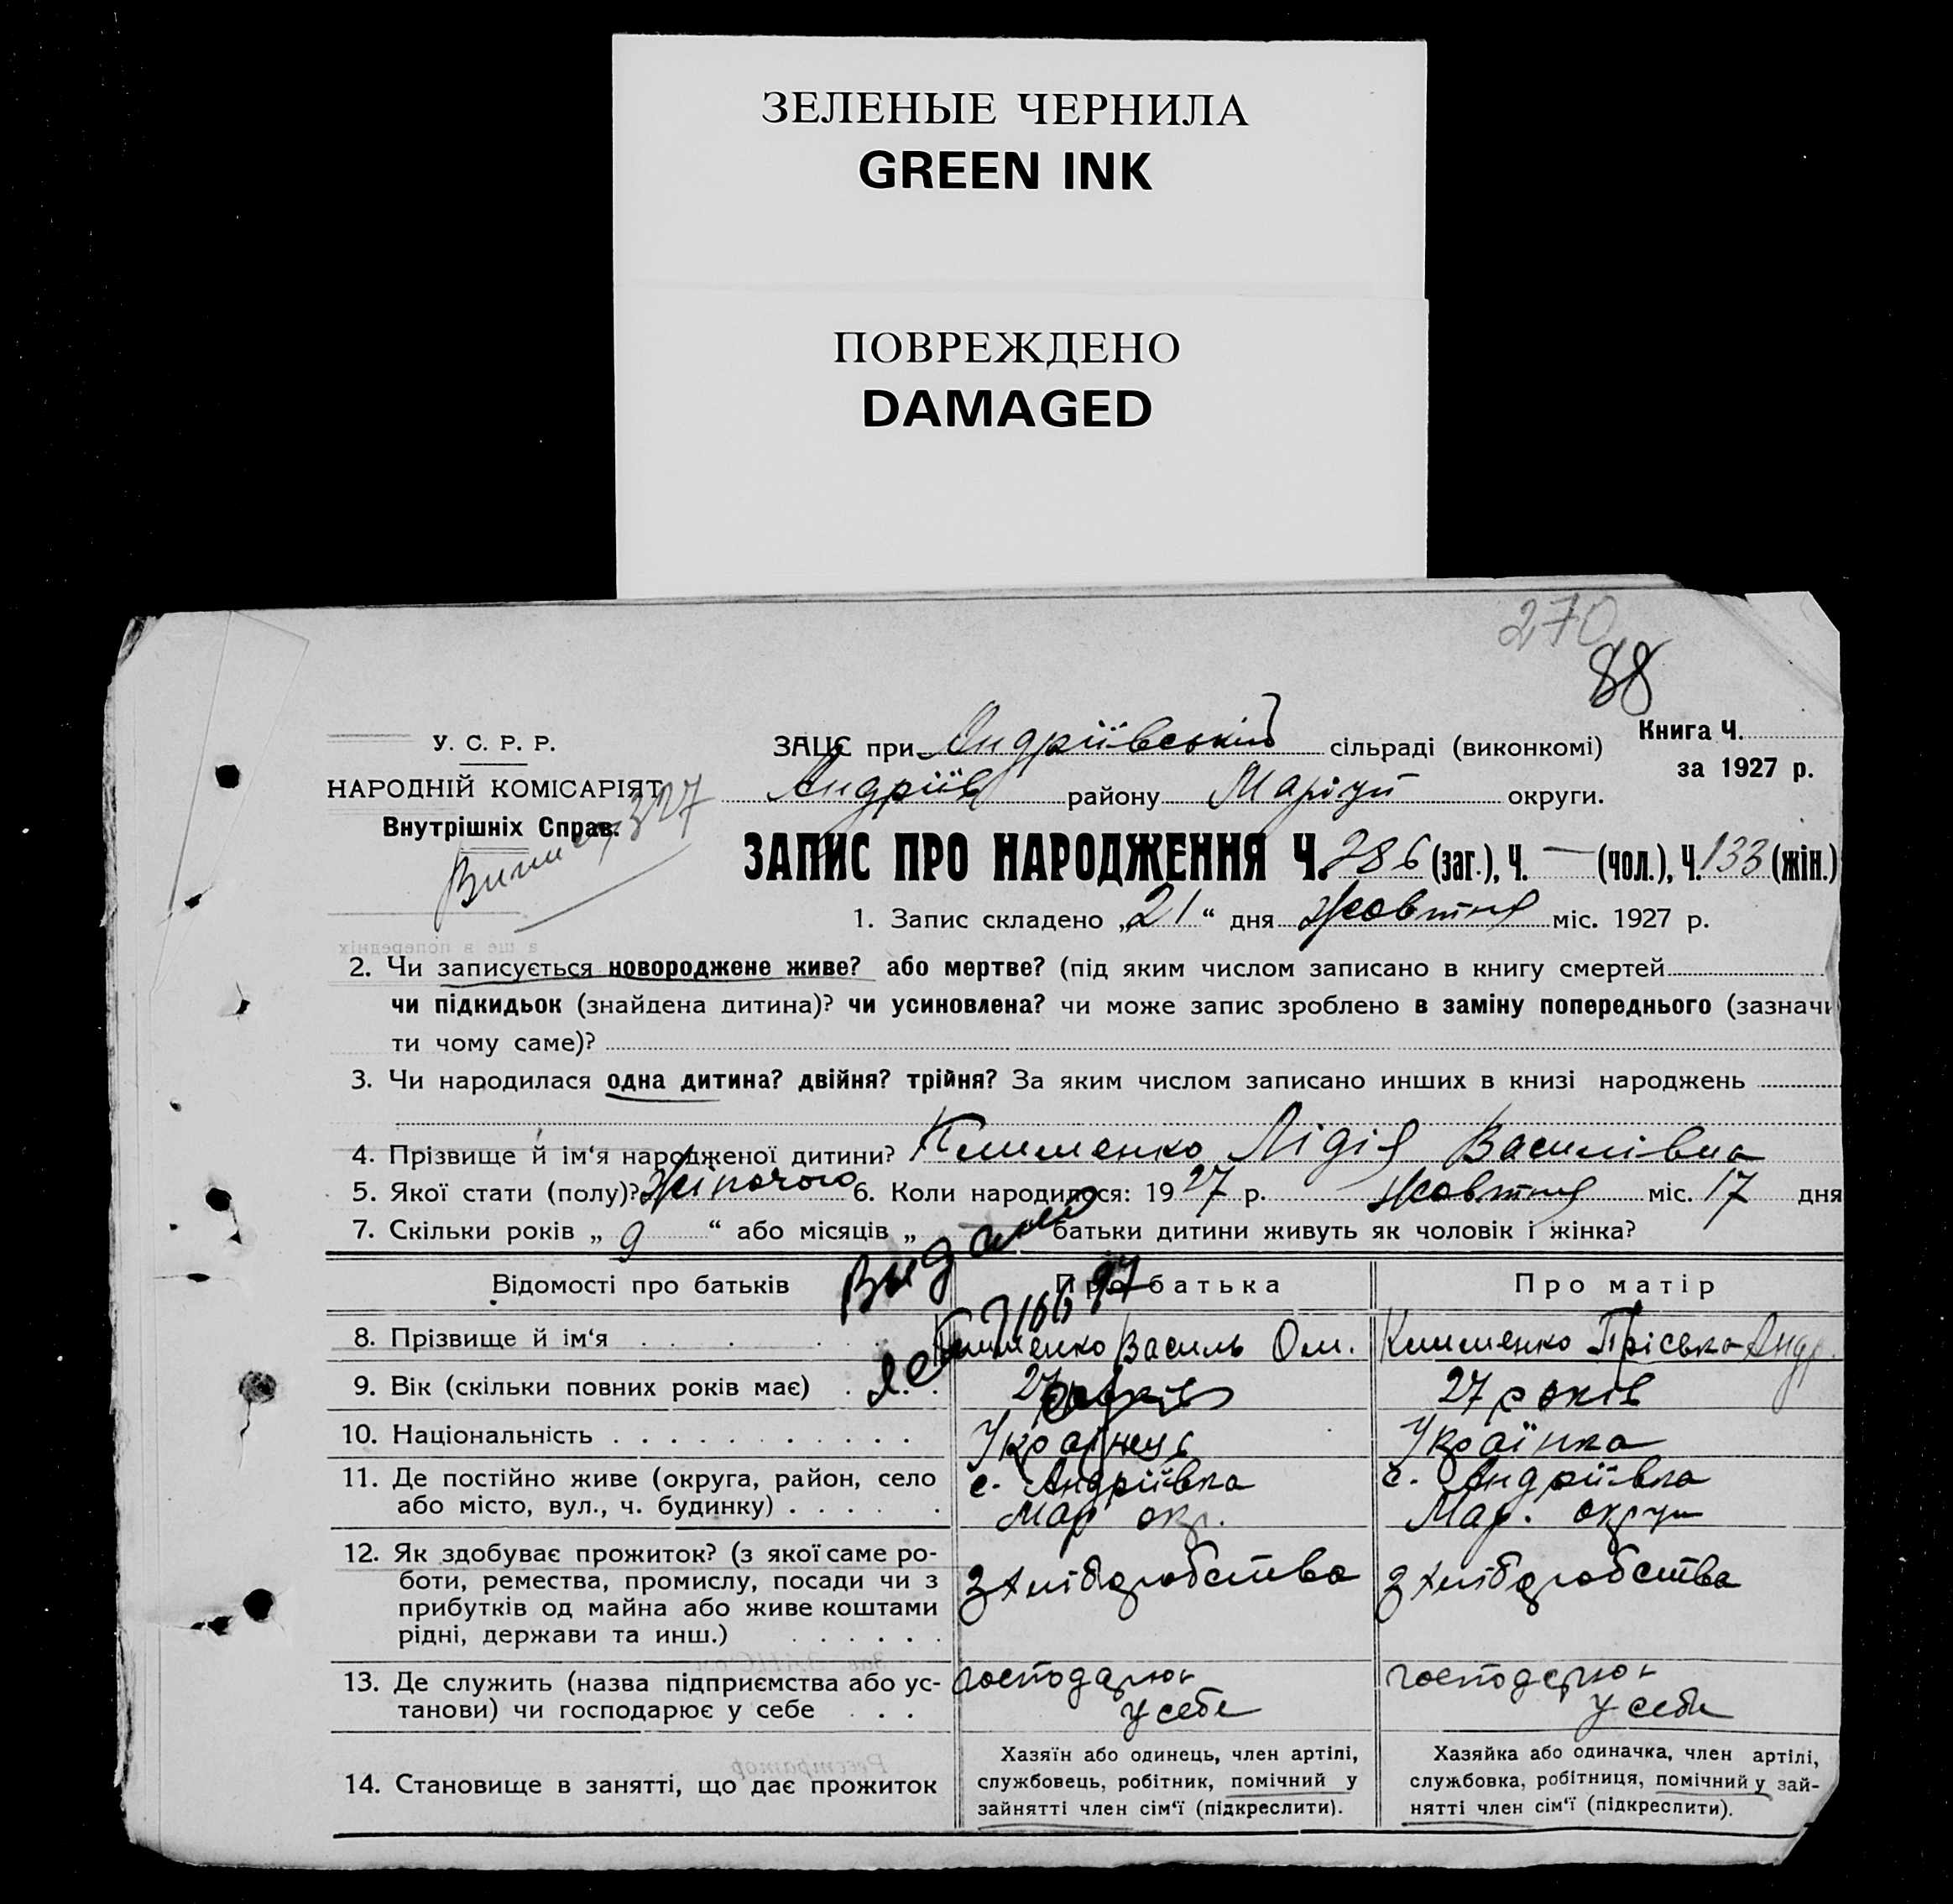 ЗЕЛЕНЫЕ ЧЕРНИЛА
GREEN INK
ПОВРЕЖДЕНО
DAMAGED
270
88
У. С. Р. Р.
НАРОДНІЙ КОМІСАРІЯТ
Внутрішніх Справ.
327
ЗАЦС при Андріївській сільраді (виконкомі)
Книга Ч.
за 1927 р.
Андріїв району Маріуп округи.
ЗАПИС ПРО НАРОДЖЕННЯ Ч. 286 (заг.), Ч. — (чол.), Ч. 133 (жін.)
1. Запис складено „21“ дня Жовтня міс. 1927 р.
2. Чи записується новороджене живе? або мертве? (під яким числом записано в книгу смертей
чи підкидьок (знайдена дитина)? чи усиновлена? чи може запис зроблено в заміну попереднього (зазначи
ти чому саме)?
3. Чи народилася одна дитина? двійня? трійня? За яким числом записано инших в книзі народжень
4. Прізвище й ім‘я народженої дитини? Клименко Лідія Василівна
5. Якої стати (полу)? Жіночого 6. Коли народилося: 1927 р. Жовтня міс. 17 дня
7. Скільки років „ 9 “ або місяців „ батьки дитини живуть як чоловік і жінка?
Видано
Відомості про батьків Про батька Про матір
8. Прізвище й ім‘я Клименко Василь Ом. Клименко Пріська Андр.
9. Вік (скільки повних років має) 27 років 27 років
10. Національність Українець Українка
11. Де постійно живе (округа, район, село
або місто, вул., ч. будинку)
с. Андріївка
Мар окр.
с. Андріївка
Мар. округи
12. Як здобуває прожиток? (з якої саме ро-
боти, ремества, промислу, посади чи з
прибутків од майна або живе коштами
рідні, держави та инш.)
З хліборобства
З хліборобства
13. Де служить (назва підприємства або ус-
танови) чи господарює у себе
господарює
у себе
господарює
у себе
14. Становище в занятті, що дає прожиток
Хазяїн або одинець, член артілі,
службовець, робітник, помічний у
зайнятті член сім‘ї (підкреслити).
Хазяйка або одиначка, член артілі,
службовка, робітниця, помічний у зай-
нятті член сім‘ї (підкреслити).